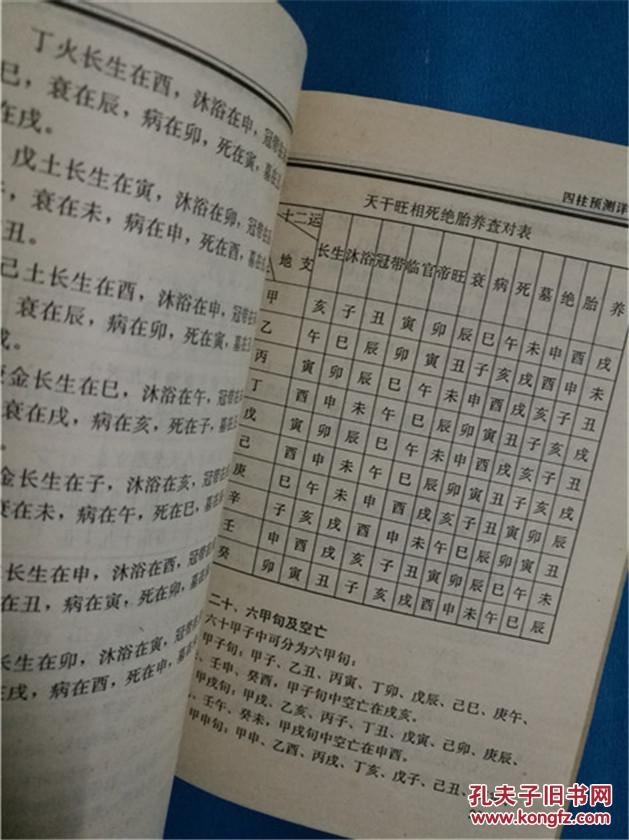 丁火长生在酉，沐浴在申，冠带在
巳，衰在辰，病在卯，死在寅，墓在
在戌。
戊土长生在寅，沐浴在卯，冠带在
，衰在未，病在申，死在酉，墓在
丑。
己土长生在酉，沐浴在申，冠带在
衰在辰，病在卯，死在寅，墓在
戌。
金长生在巳，沐浴在午，冠带在
衰在戌，病在亥，死在子，墓在
金长生在子，沐浴在亥，冠带
在未，病在午，死在巳，墓在
长生在申，沐浴在酉，冠带在
在丑，病在寅，死在卯，墓在
长生在卯，沐浴在寅，冠带
在戌，病在酉，死在申，墓在
四柱预测详
天干旺相死绝胎养查对表
十二运
地支 长生 沐浴 冠带 临官 帝旺 衰 病 死 墓 绝 胎 养
甲 亥 子 丑 寅 卯 辰 巳 午 未 申 酉 戌
乙 午 巳 辰 卯 寅 丑 子 亥 戌 酉 申 未
丙 寅 卯 辰 巳 午 未 申 酉 戌 亥 子 丑
丁 酉 申 未 午 巳 辰 卯 寅 丑 子 亥 戌
戊 寅 卯 辰 巳 午 未 申 酉 戌 亥 子 丑
己 酉 申 未 午 巳 辰 卯 寅 丑 子 亥 戌
庚 巳 午 未 申 酉 戌 亥 子 丑 寅 卯 辰
辛 子 亥 戌 酉 申 未 午 巳 辰 卯 寅 丑
壬 申 酉 戌 亥 子 丑 寅 卯 辰 巳 午 未
癸 卯 寅 丑 子 亥 戌 酉 申 未 午 巳 辰
二十、六甲旬及空亡
六十甲子中可分为六甲旬：
甲子旬：甲子、乙丑、丙寅、丁卯、戊辰、己巳、庚午、
、壬申、癸酉，甲子旬中空亡在戌亥。
甲戌旬：甲戌、乙亥、丙子、丁丑、戊寅、己卯、庚辰、
、壬午、癸未，甲戌旬中空亡在申酉。
甲申旬：甲申、乙酉、丙戌、丁亥、戊子、己丑、
孔夫子旧书网
www.kongfz.com